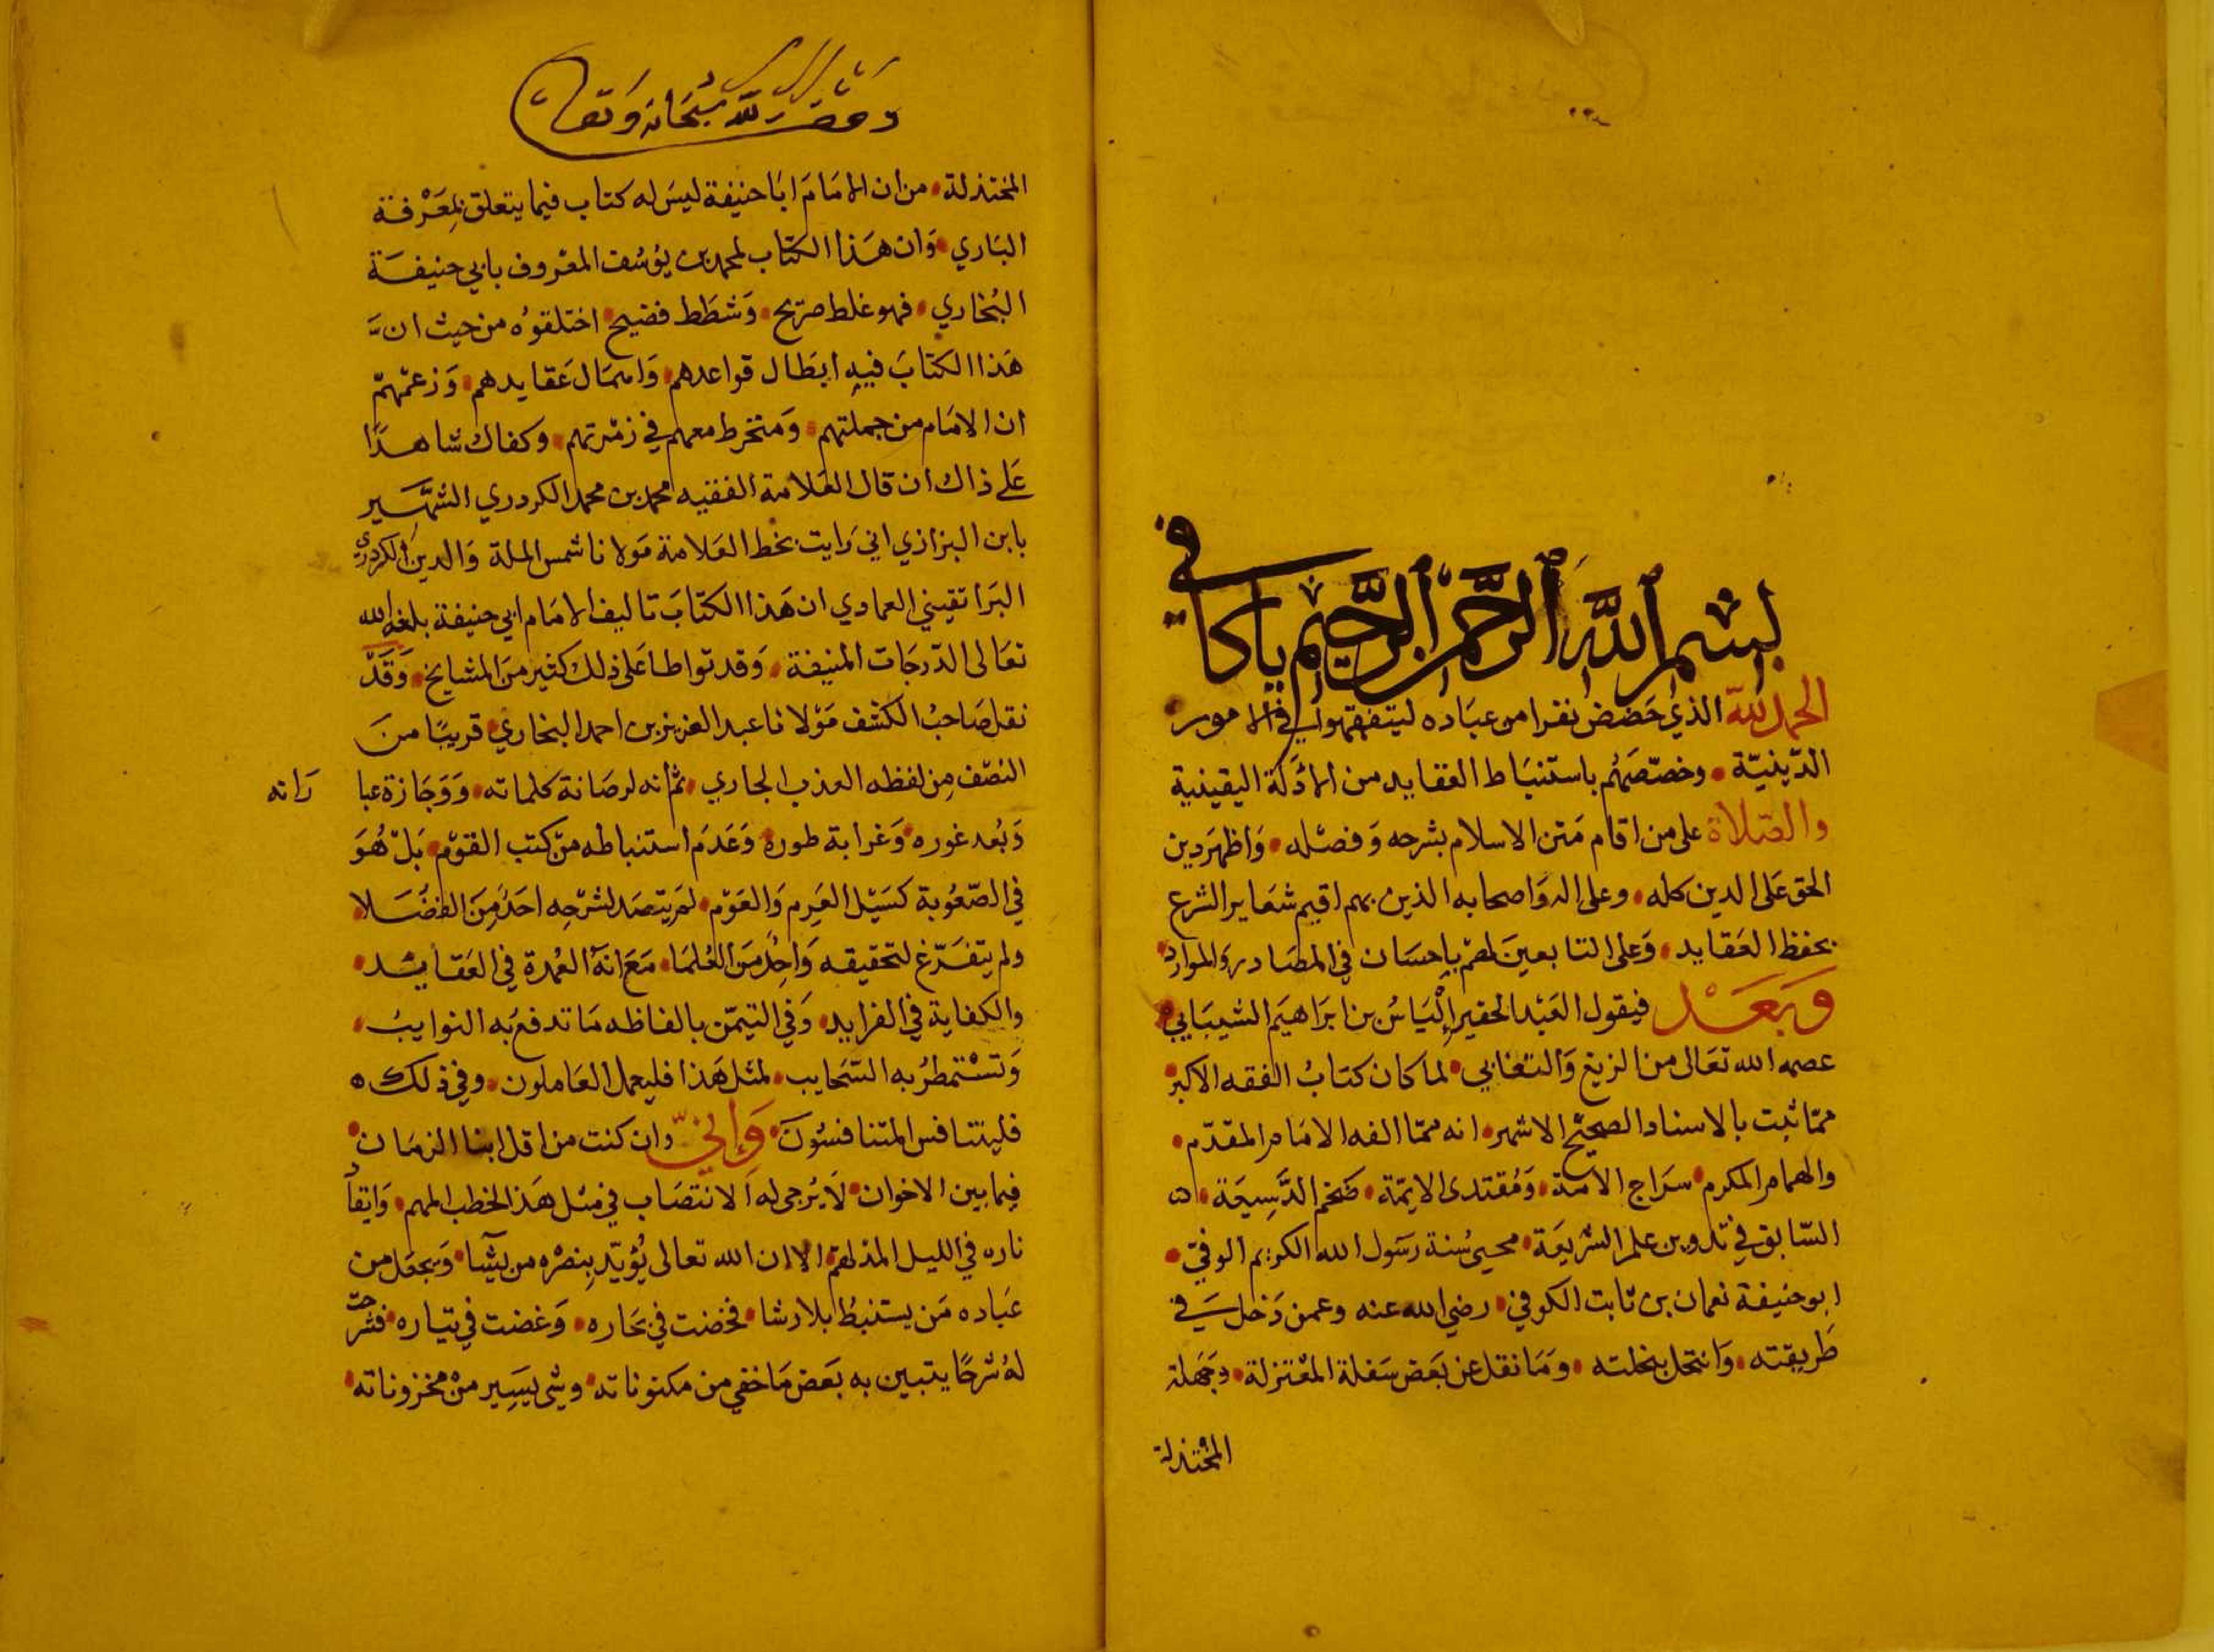 بسم الله الرحمن الرحيم يا كافي
الحمد لله الذي حضض نفرا من عباده ليتفقهوا في الامور
الدينية • وخصصهم باستنباط العقايد من الادلة اليقينية
والصلاة على من اقام متن الاسلام بشرحه وفصله • واظهر دين
الحق على الدين كله • وعلى اله واصحابه الذين بهم اقيم شعاير الشرع
بحفظ العقايد • وعلى التابعين لهم باحسان في المصادر والموارد •
وبعد فيقول العبد الحقير إلياس بن ابراهيم السينابي •
عصمه الله تعالى من الزيغ والتغابي • لما كان كتاب الفقه الاكبر •
مما ثبت بالاسناد الصحيح الاشهر • انه مما الفه الامام المقدم •
والهمام المكرم • سراج الامة • ومقتدى الايمة • ضخم الدسيعة •
السابق في تدوين علم الشريعة • محيي سنة رسول الله الكريم الوفي •
ابو حنيفة نعمان بن ثابت الكوفي • رضي الله عنه وعمن دخل في
طريقته • وانتحل بنحلته • وما نقل عن بعض سفلة المعتزلة • وجهلة
المختذلة
وقف لله سبحانه وتعالى
المختذلة • من ان الامام ابا حنيفة ليس له كتاب فيما يتعلق بمعرفة
الباري • وان هذا الكتاب لمحمد بن يوسف المعروف بابي حنيفة
البخاري • فهو غلط صريح • وشطط فضيح • اختلقوه من حيث ان
هذا الكتاب فيه ابطال قواعدهم • واسمال عقايدهم • وزعمهم
ان الامام من جملتهم • ومنخرط معهم في زمرتهم • وكفاك شاهدا
على ذاك ان قال العلامة الفقيه محمد بن محمد الكردري الشهير
بابن البزازي اني رايت بخط العلامة مولانا شمس الملة والدين الكردري
البراتقيني العمادي ان هذا الكتاب تاليف الامام ابي حنيفة بلغه الله
تعالى الدرجات المنيفة • وقد تواطا على ذلك كثير من المشايخ • وقد
نقل صاحب الكشف مولانا عبد العزيز بن احمد البخاري • قريبا من
النصف من لفظه العذب الجاري • ثم انه لرصانة كلماته • ووجازة عبا راته
وبعد غوره • وغرابة طوره • وعدم استنباطه من كتب القوم • بل هو
في الصعوبة كسيل العرم والعوم • لم يتصد لشرحه احد من الفضلا •
ولم يتفرغ لتحقيقه واحد من العلما • مع انه العمدة في العقايد •
والكفاية في الفرايد • وفي التيمن بالفاظه ما تدفع به النوايب •
وتستمطر به السحايب • لمثل هذا فليعمل العاملون • وفي ذلك ه
فليتنافس المتنافسون • وإني وان كنت من اقل ابنا الزمان •
فيما بين الاخوان • لا يرجى له الانتصاب في مثل هذا الخطب المهم • وايقاد
ناره في الليل المدلهم • الا ان الله تعالى يؤيد بنصره من يشا • ويجعل من
عباده من يستنبط بلا رشا • فخضت في بحاره • وغضت في تياره • فشرحت
له شرحا يتبين به بعض ما خفي من مكنوناته • وشي يسير من مخزوناته •